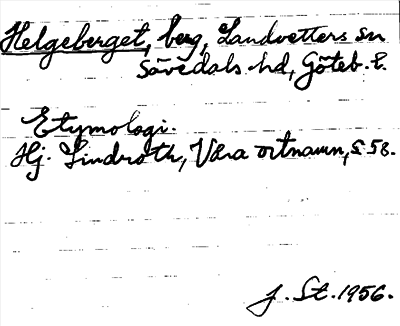 Helgeberget, berg, Landvetters sn
Sävedals hd, Göteb. l.
Etymologi.
Hj. Lindroth, Våra ortnamn, s. 58.
J. St. 1956.